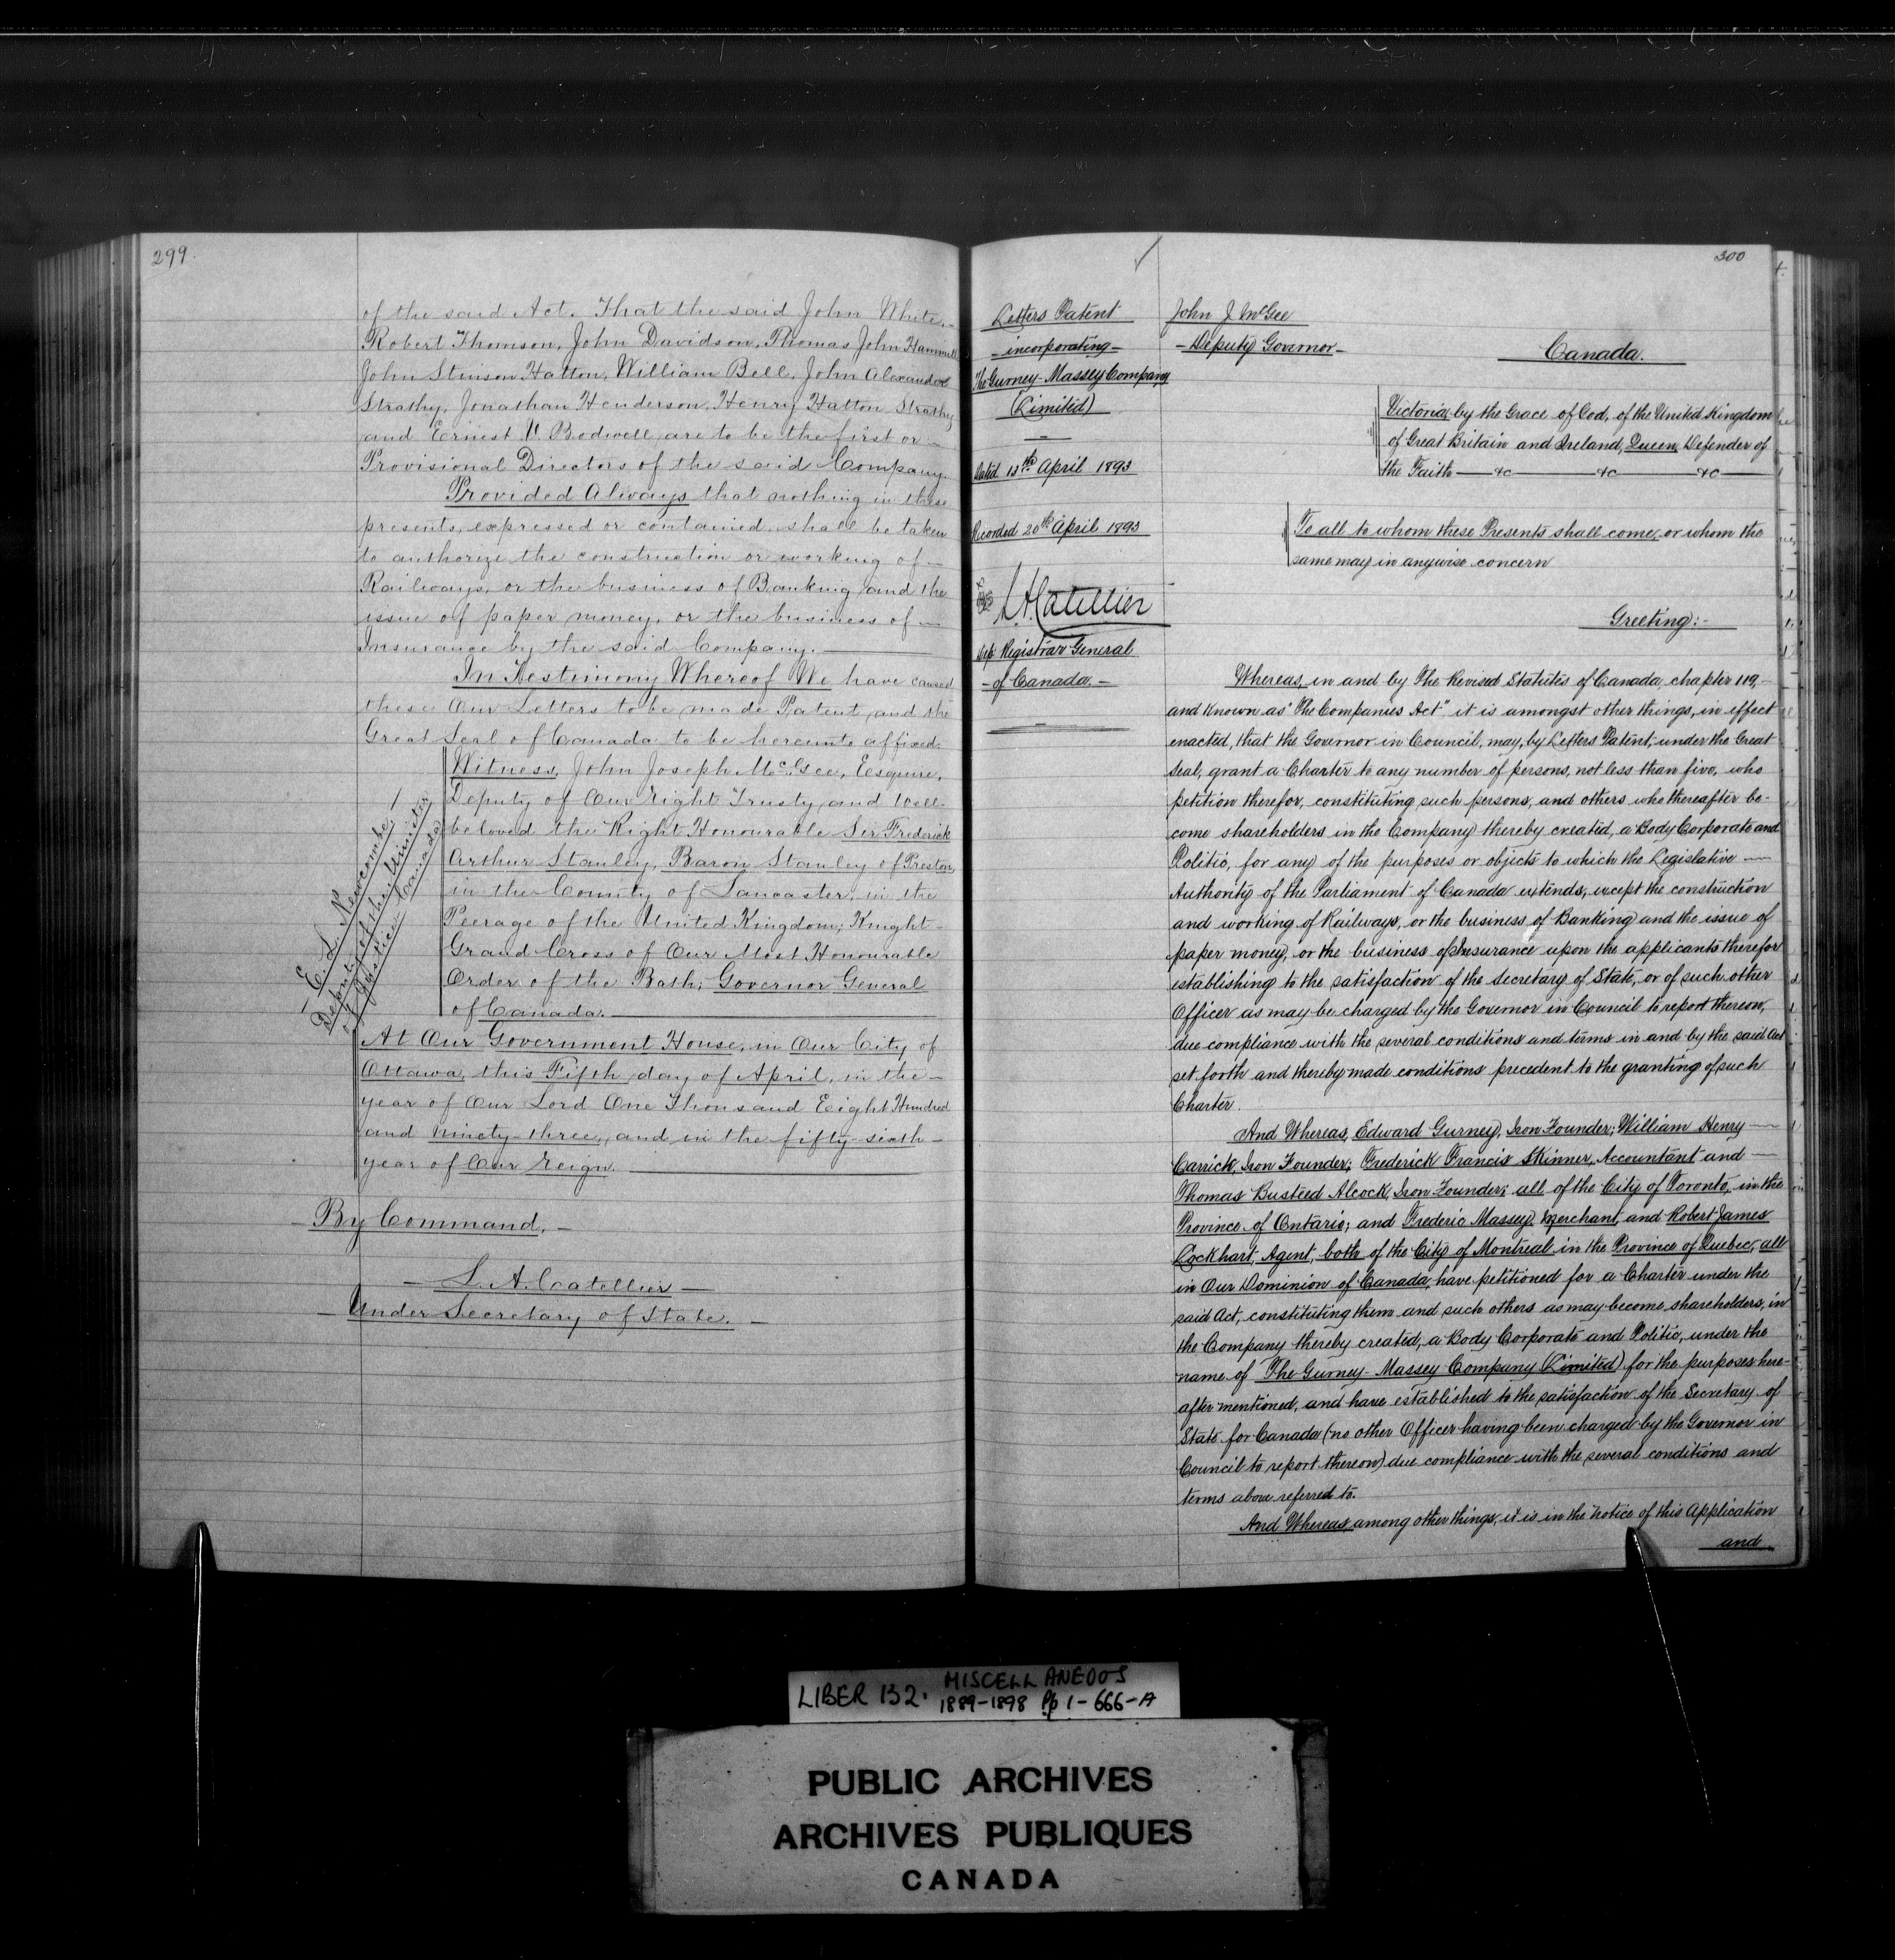 299.
of the said Act. That the said John White,
Robert Thomson, John Davidson, Thomas John Hammill
John Stinson Hatton, William Bell, John Alexander
Strathy, Jonathan Henderson, Henry Hatton Strathy
and Ernest V. Bodwell are to be the first or
Provisional Directors of the said Company.
Provided Always that nothing in these
presents, expressed or contained shall be taken
to authorize the construction or working of
Railways, or the business of Banking and the
issue of paper money, or the business of
Insurance by the said Company.
In Testimony Whereof We have caused
these Our Letters to be made Patent and the
Great Seal of Canada to be hereunto affixed:
Witness, John Joseph McGee, Esquire,
Deputy of Our Right Trusty and Well-
beloved the Right Honourable Sir Frederick
Arthur Stanley, Baron Stanley of Preston,
in the County of Lancaster, in the
Peerage of the United Kingdom; Knight
Grand Cross of Our Most Honourable
Order of the Bath; Governor General
of Canada.
E. L. Newcombe,
Deputy of the Minister
of Justice Canada
At Our Government House, in Our City of
Ottawa, this Fifth day of April, in the
year of Our Lord One Thousand Eight Hundred
and ninety-three, and in the fifty-sixth
year of Our Reign.
By Command,
L. A. Catellier
Under Secretary of State.
300
Letters Patent
incorporating
The Gurney-Massey Company
(Limited)
Dated 13th April 1893
Recorded 20th April 1893
L.A. Catellier
Dep. Registrar General
of Canada.
John J McGee
Deputy Governor
Canada.
Victoria, by the Grace of God, of the United Kingdom
of Great Britain and Ireland, Queen, Defender of
the Faith &c &c &c
To all to whom these Presents shall come, or whom the
same may in anywise concern
Greeting:-
Whereas, in and by The Revised Statutes of Canada, chapter 119,
and known as "The Companies Act" it is amongst other things, in effect
enacted, that the Governor in Council, may, by Letters Patent, under the Great
Seal, grant a Charter to any number of persons, not less than five, who
petition therefor, constituting such persons, and others who thereafter be-
come shareholders in the Company thereby created, a Body Corporate and
Politic, for any of the purposes or objects to which the Legislative
Authority of the Parliament of Canada extends, except the construction
and working of Railways, or the business of Banking and the issue of
paper money, or the business of Insurance upon the applicants therefor
establishing to the satisfaction of the Secretary of State, or of such other
Officer as may be charged by the Governor in Council to report thereon,
due compliance with the several conditions and terms in and by the said Act
set forth and thereby made conditions precedent to the granting of such
Charter.
And Whereas, Edward Gurney, Iron Founder; William Henry
Carrick, Iron Founder; Frederick Francis Skinner, Accountant and
Thomas Busteed Alcock, Iron Founder; all of the City of Toronto, in the
Province of Ontario; and Frederic Massey, Merchant, and Robert James
Lockhart, Agent, both of the City of Montreal in the Province of Quebec, all
in Our Dominion of Canada, have petitioned for a Charter under the
said Act, constituting them and such others as may become shareholders, in
the Company thereby created, a Body Corporate and Politic, under the
name of The Gurney-Massey Company (Limited) for the purposes here-
after mentioned, and have established to the satisfaction of the Secretary of
State for Canada (no other Officer having been charged by the Governor in
Council to report thereon) due compliance with the several conditions and
terms above referred to.
And Whereas, among other things, it is in the notice of this Application
and
LIBER 132. MISCELLANEOUS
1889-1898 Pp 1-666-A
PUBLIC ARCHIVES
ARCHIVES PUBLIQUES
CANADA